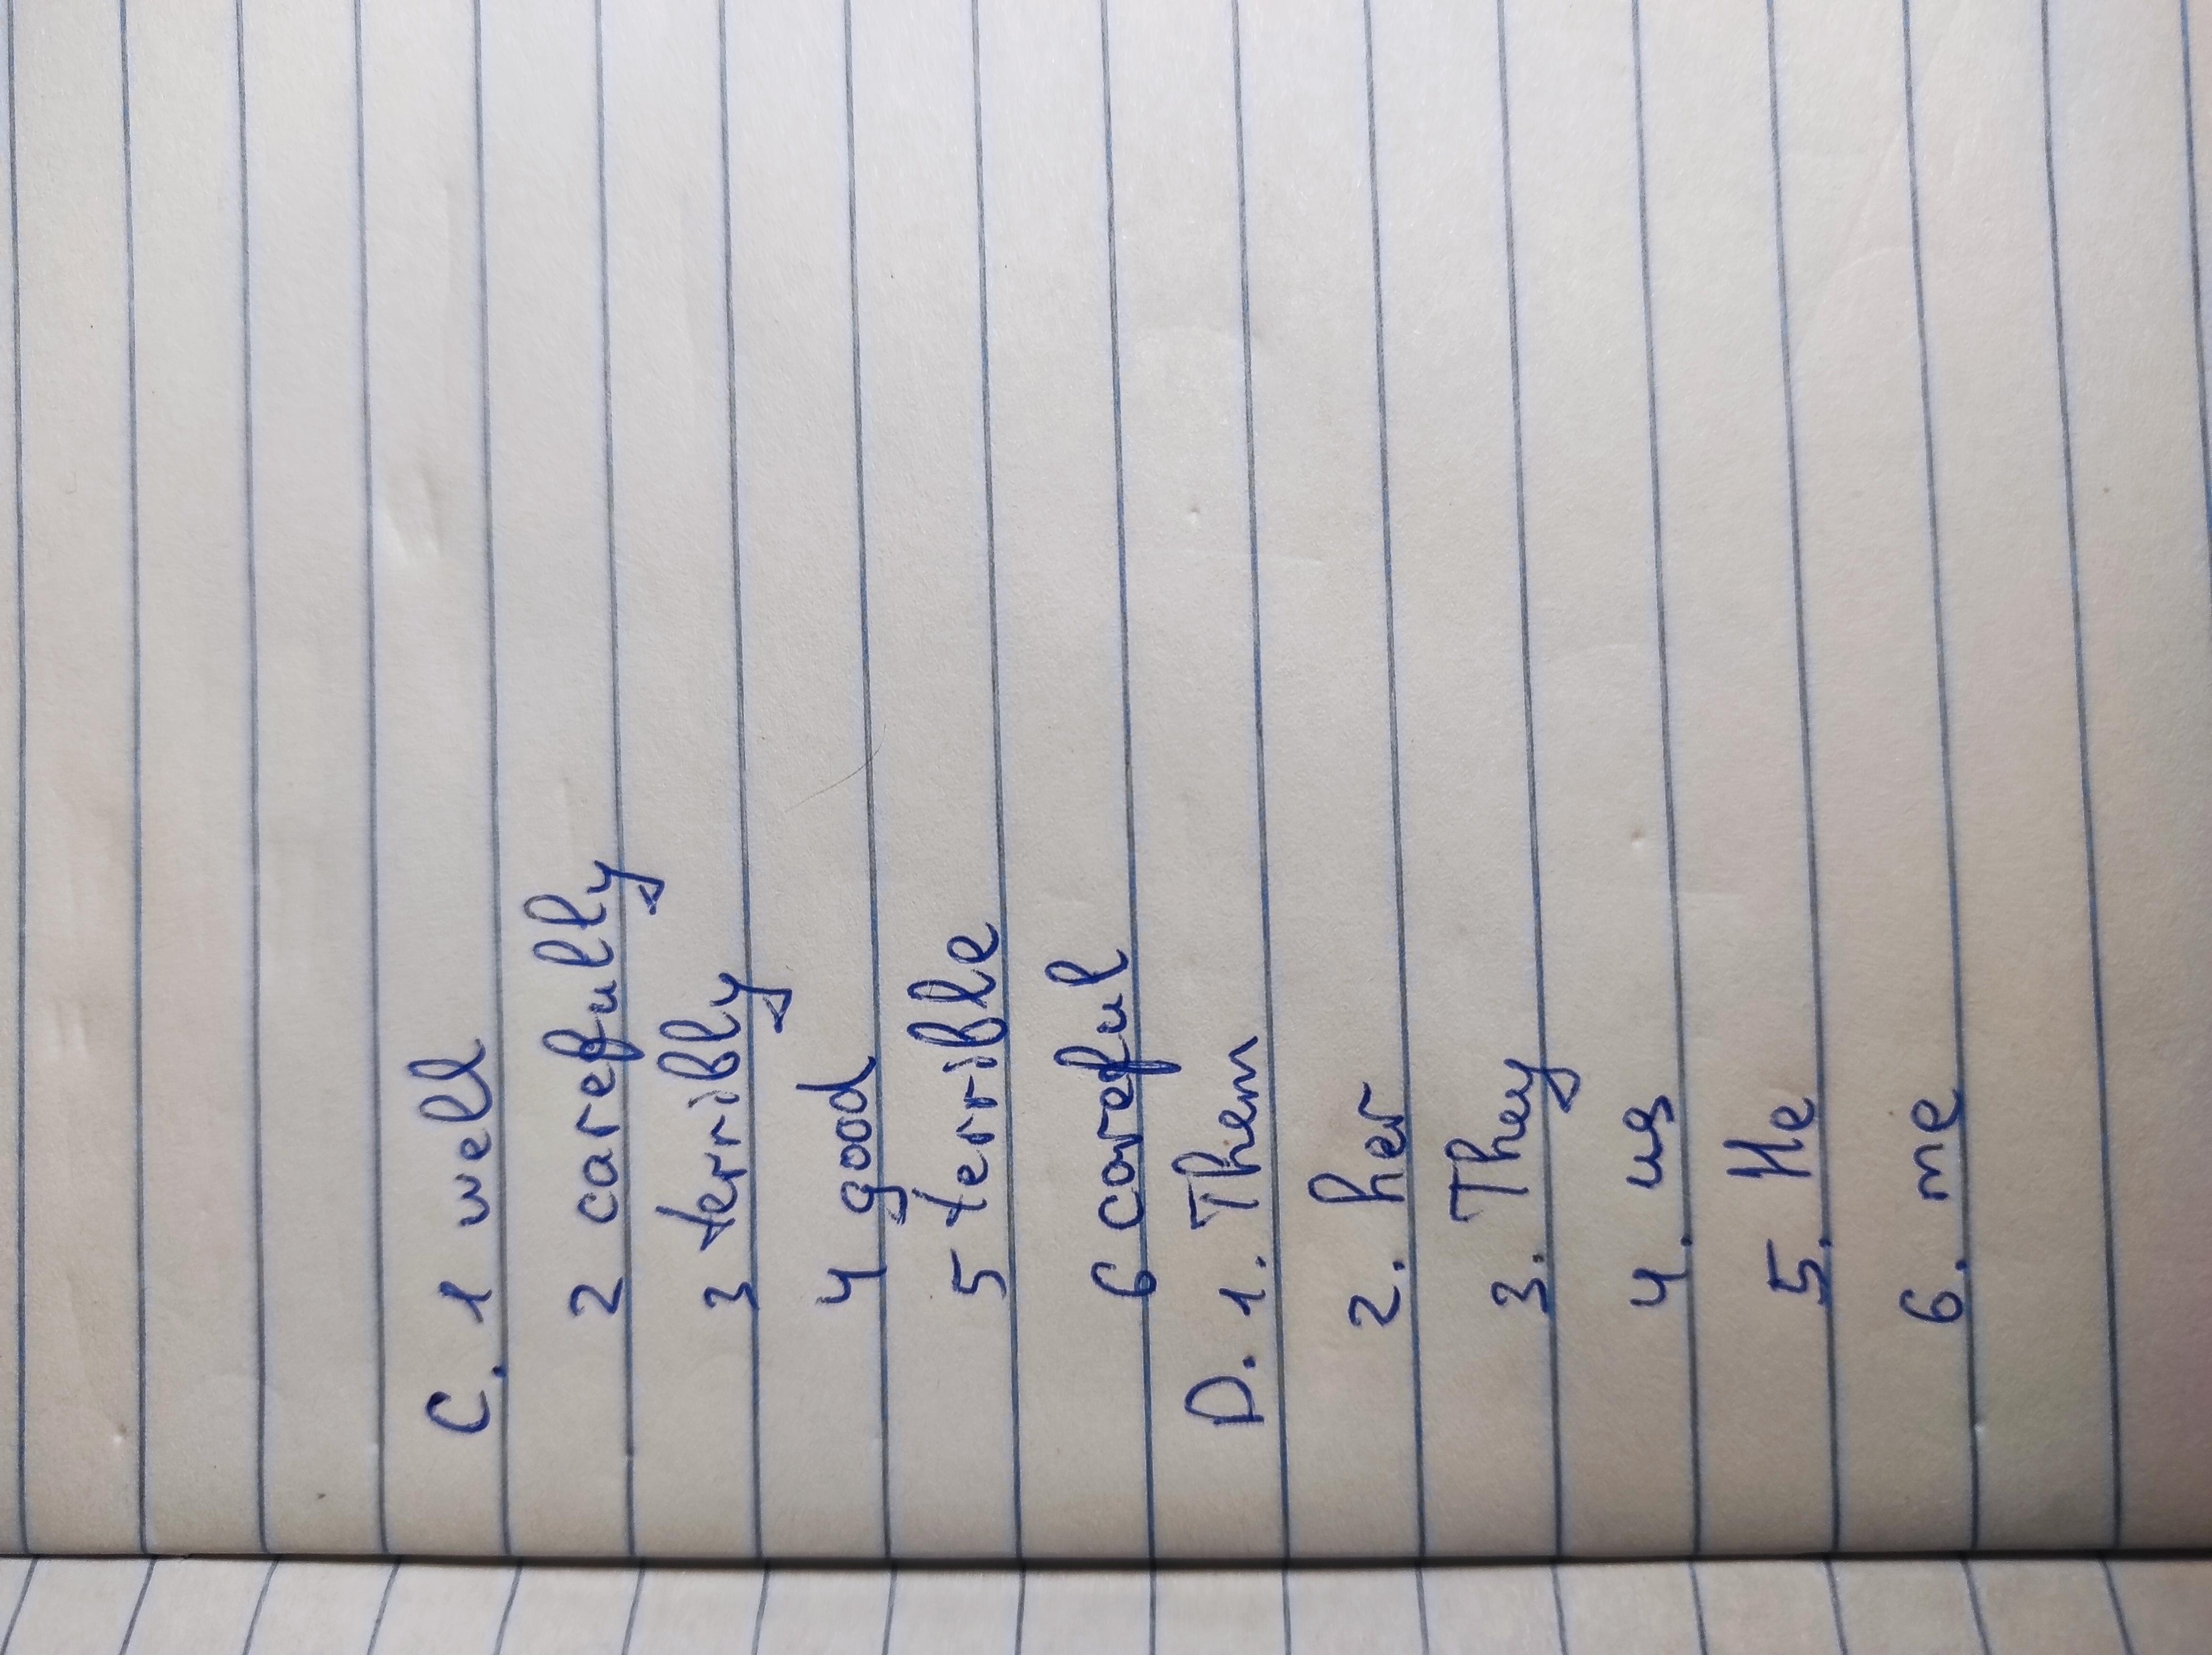 C. 1 well
2 carefully
3 terribly
4 good
5 terrible
6 careful
D. 1. Them
2. her
3. They
4. us
5. He
6. me